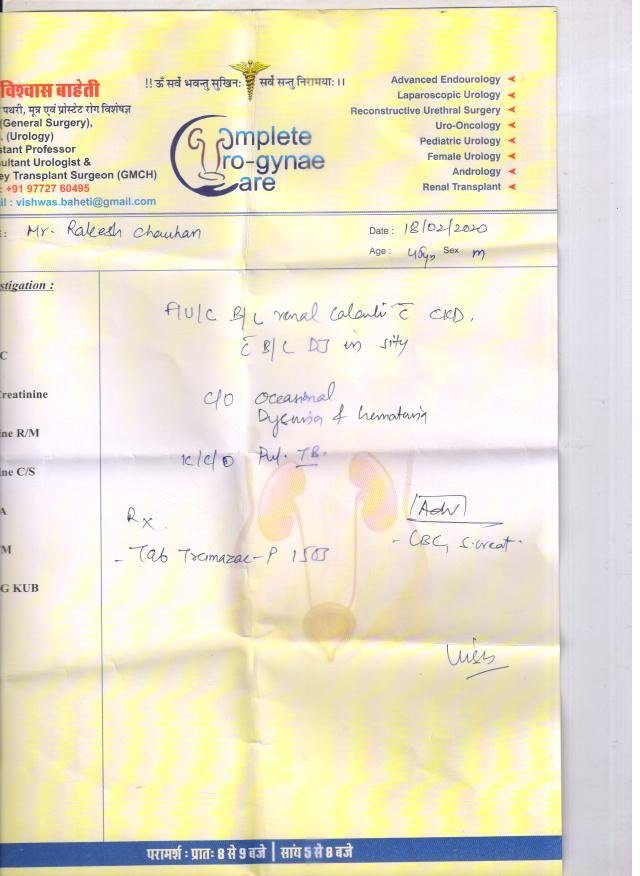 विश्वास बाहेती
पथरी, मूत्र एवं प्रोस्टेट रोग विशेषज्ञ
(General Surgery),
. (Urology)
stant Professor
ultant Urologist &
ey Transplant Surgeon (GMCH)
: +91 97727 60495
il : vishwas.baheti@gmail.com
!! ॐ सर्वे भवन्तु सुखिनः सर्वे सन्तु निरामयाः !!
Complete
Uro-gynae
Care
Advanced Endourology
Laparoscopic Urology
Reconstructive Urethral Surgery
Uro-Oncology
Pediatric Urology
Female Urology
Andrology
Renal Transplant
: Mr. Rakesh Chauhan
Date : 18/02/2020
Age : Sex m
stigation :
C
reatinine
ine R/M
ine C/S
A
M
G KUB
F/U/C B/L renal calculi c̄ CKD.
c̄ B/L DJ in situ
C/O Occasional
Dysuria & hematuria
K/C/O Pul. TB.
Rx
Adv
- CBC, S.creat.
- Tab -P
परामर्श : प्रातः 8 से 9 बजे | सांय 5 से 8 बजे